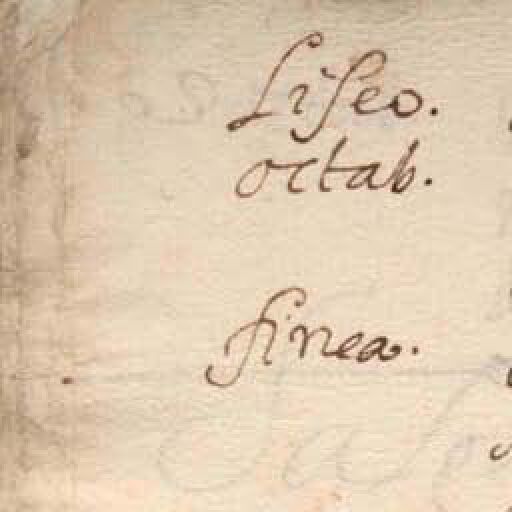 Liseo.
octab.
finea.